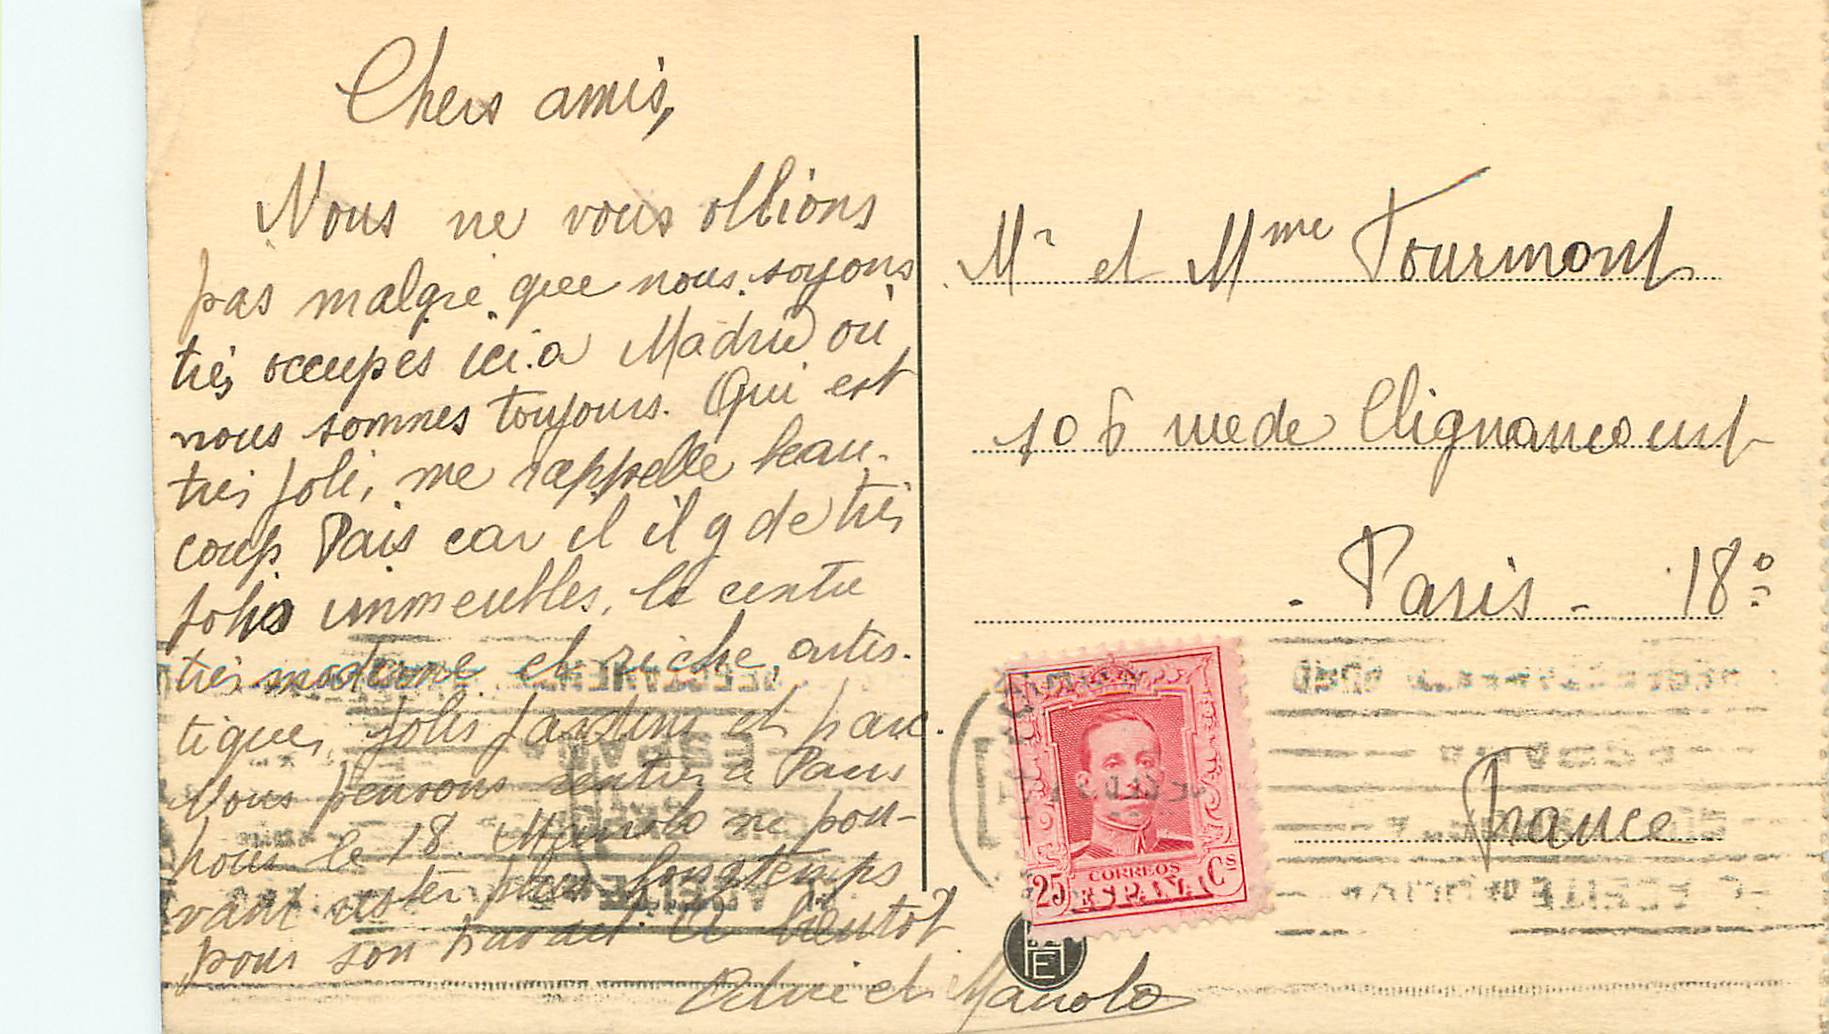 Chers amis,
Nous ne vous oblions
pas malgré que nous soyons
très occupés ici à Madrid où
nous sommes toujours. Qui est
très joli, me rappelle beau-
coup Paris car il il y de très
jolis immeubles, le centre
très moderne et riche, artis-
tiques, jolis jardins et parc.
Nous pensons rentrer à Paris
pour le 18. Manolo ne pou-
vant rester plus longtemps
pour son travail. A bientôt
et Manolo
Mr et Mme Tourmont
106 rue de Clignancourt
- Paris - 18º
France
CORREOS
25 ESPAÑA Cs